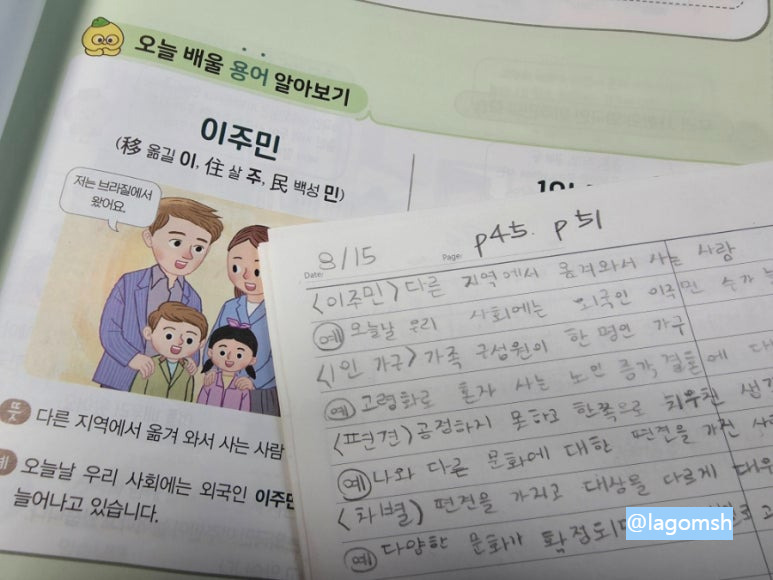 오늘 배울 용어 알아보기
이주민
(移 옮길 이, 住 살 주, 民 백성 민)
저는 브라질에서
왔어요.
뜻 다른 지역에서 옮겨 와서 사는 사람
예 오늘날 우리 사회에는 외국인 이주민
늘어나고 있습니다.
8/15
Date:
Page:
p45. p51
<이주민> 다른 지역에서 옮겨와서 사는 사람
(예) 오늘날 우리 사회에는 외국인 이주민 수가
<1인 가구> 가족 구성원이 한 명인 가구
(예) 고령화로 혼자 사는 노인 증가, 결혼에
<편견> 공정하지 못하고 한쪽으로 치우친
(예) 나와 다른 문화에 대한 편견을 가진
<차별> 편견을 가지고 대상을 다르게
(예) 다양한 문화가
@lagomsh